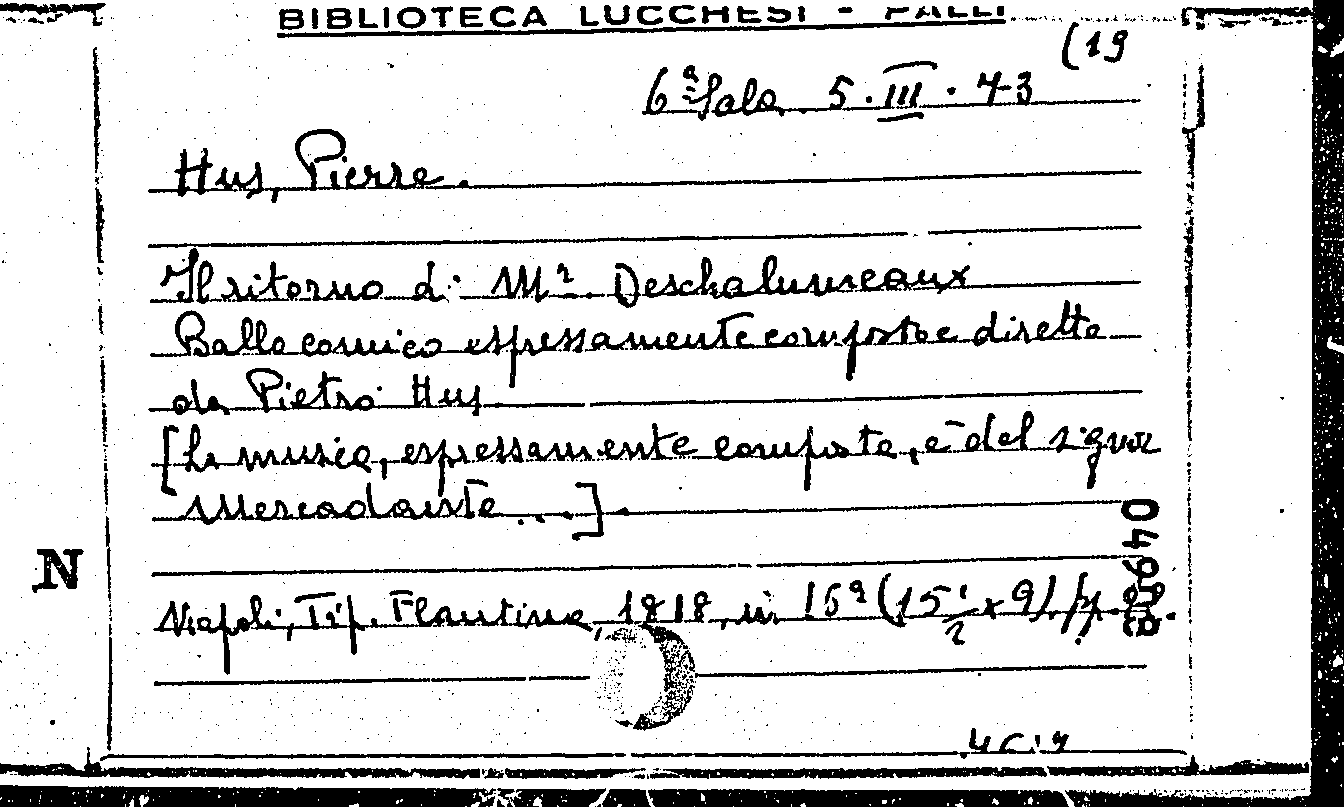 BIBLIOTECA LUCCHESI - PALLI
(19
6ª Sala 5.III.43
Hus, Pierre.
Il ritorno di Mr. Deschalumeaux
Ballo comico espressamente composto e diretto
da Pietro Hus
[La musica, espressamente composta, è del signor
Mercadante...].
N
Napoli, Tip. Flautina, 1818, in 16º (15 1/2 x 9), pp.